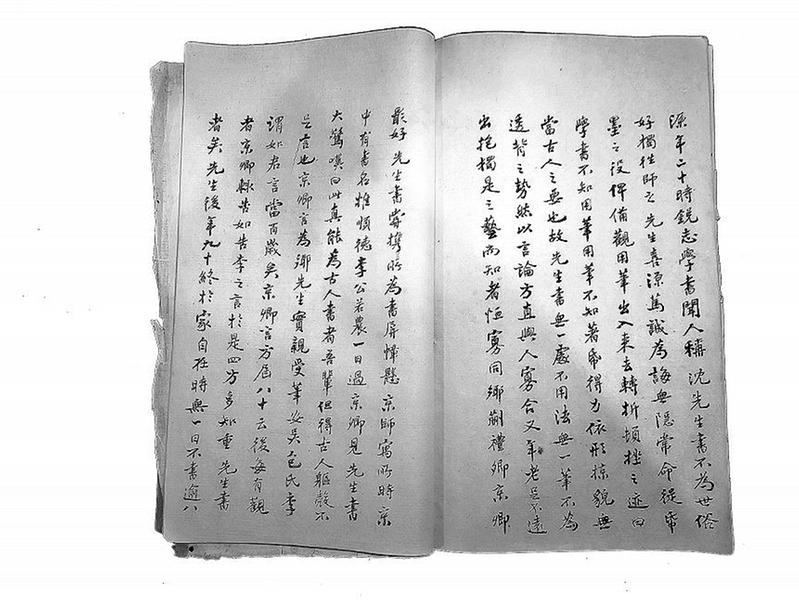 源年二十時銳志學書聞人稱沈先生書不為世俗
好獨往師之先生喜源篤誠為誨無隱常命從帋
墨之役俾備觀用筆出入來去轉折頓挫之迹曰
學書不知用筆用筆不知著帋得力依形掠貌無
當古人之要也故先生書無一處不用法無一筆不為
透背之勢然以言論方直與人寡合又年老足不遠
出抱獨是之藝而知者恒寡同鄉蒯禮卿京卿
最好先生書嘗攜所為書屏幛懸京師寓所時京
中有書名惟順德李公若農一日過京卿見先生書
大驚嘆曰此真能為古人書者吾輩但得古人軀殼不
足言也京卿言為鄉先生實親受筆安吳包氏李
謂如君言當百歲矣京卿言方屆八十云後每有觀
者京卿輒告如告李之言於是四方多知重先生書
者矣先生後年九十終於家自在時無一日不書逾八